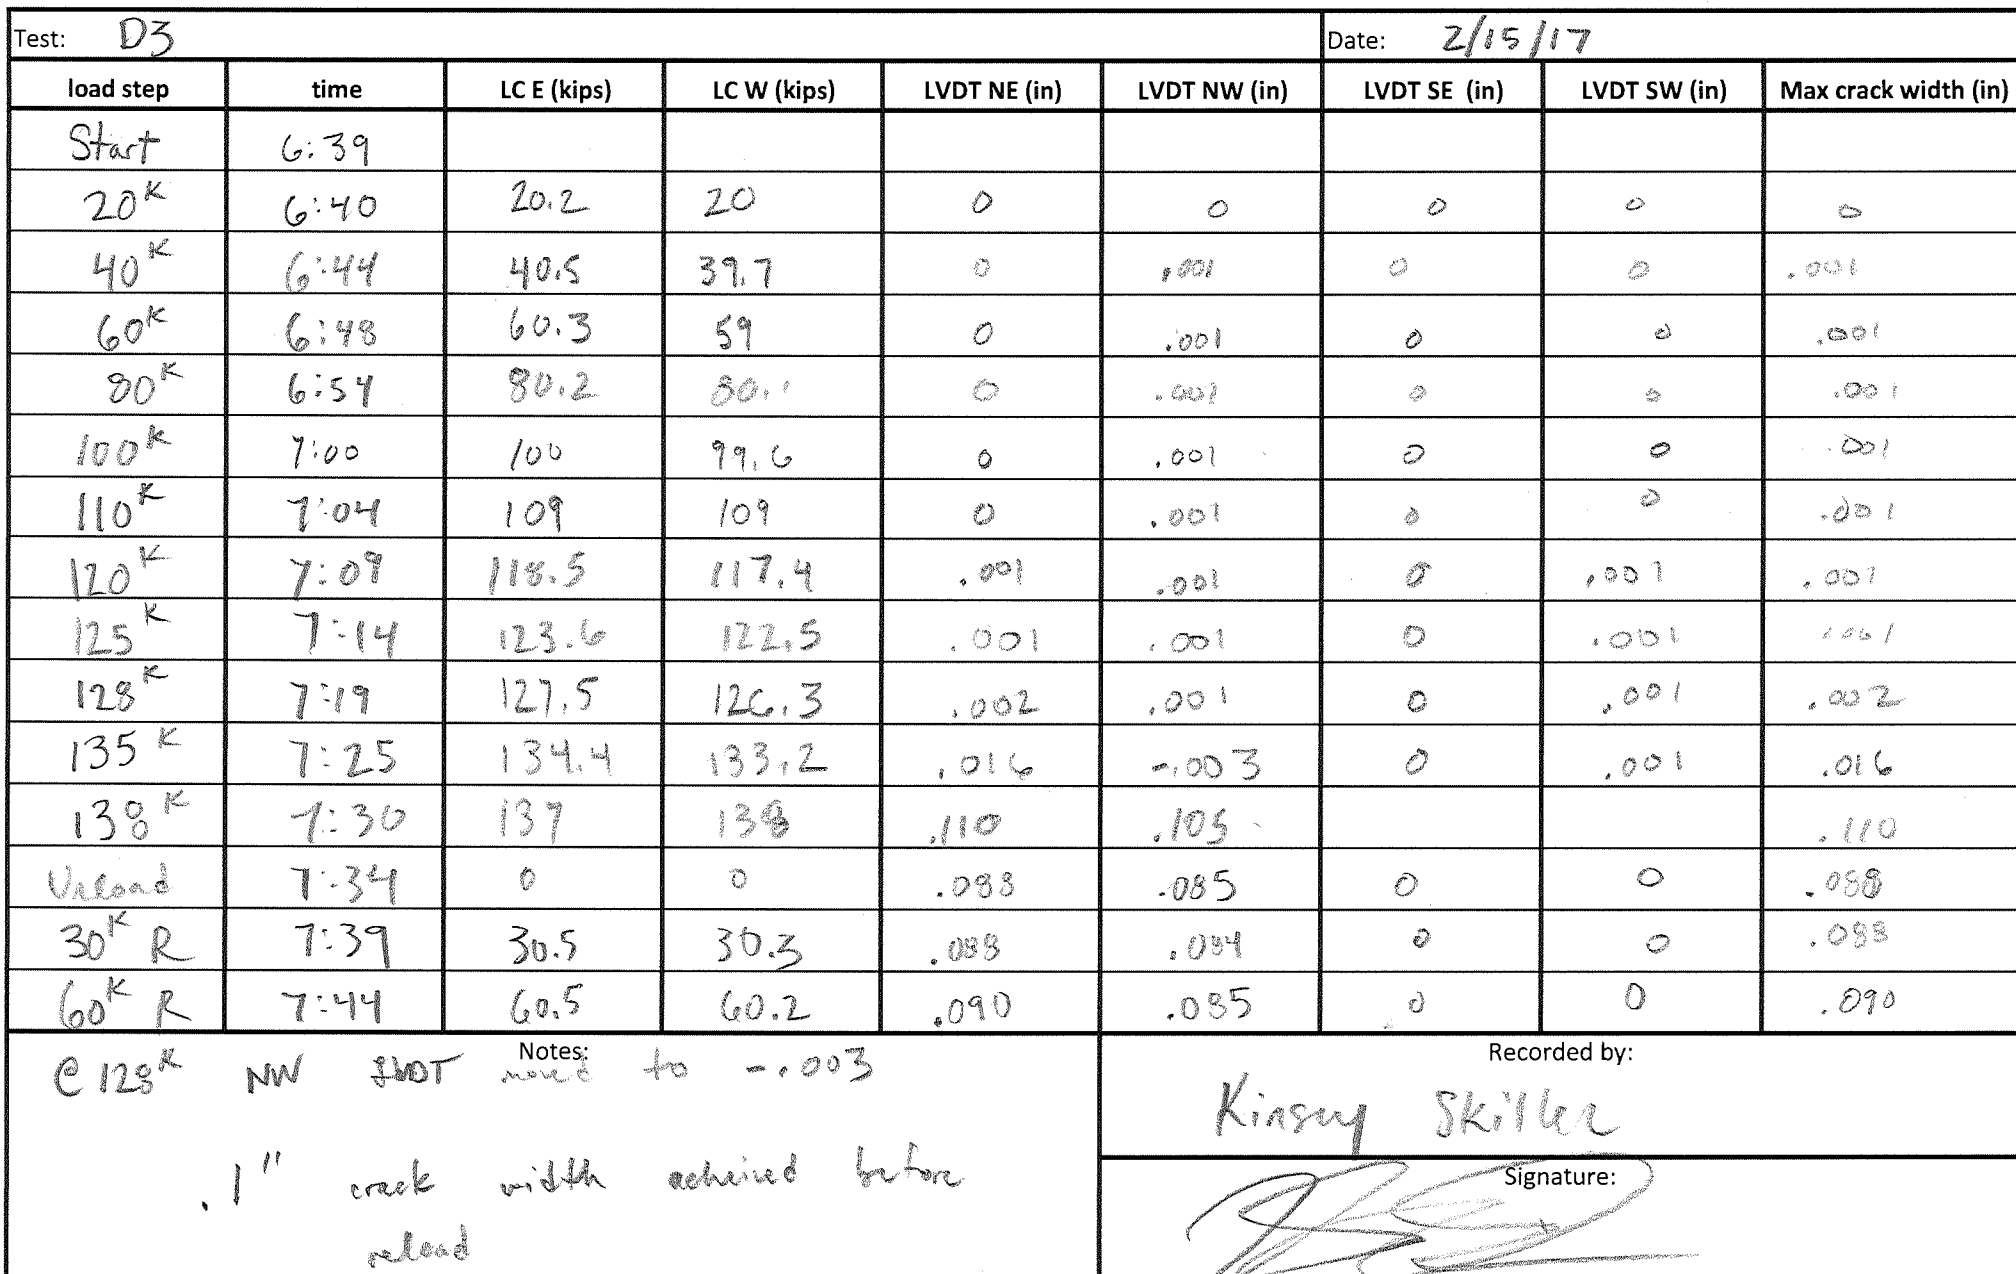 Test: D3 Date: 2/15/17
load step time LC E (kips) LC W (kips) LVDT NE (in) LVDT NW (in) LVDT SE (in) LVDT SW (in) Max crack width (in)
Start 6:39
20K 6:40 20.2 20 0 0 0 0 0
40K 6:44 40.5 39.7 0 .001 0 0 .001
60K 6:48 60.3 59 0 .001 0 0 .001
80K 6:54 80.2 80.1 0 .001 0 0 .001
100K 7:00 100 99.6 0 .001 0 0 .001
110K 7:04 109 109 0 .001 0 0 .001
120K 7:09 118.5 117.4 .001 .001 0 .001 .001
125K 7:14 123.6 122.5 .001 .001 0 .001 .001
128K 7:19 127.5 126.3 .002 .001 0 .001 .002
135K 7:25 134.4 133.2 .016 -.003 0 .001 .016
138K 7:30 137 138 .110 .105 .110
Unload 7:34 0 0 .088 .085 0 0 .088
30K R 7:39 30.5 30.3 .088 .084 0 0 .088
60K R 7:44 60.5 60.2 .090 .085 0 0 .090
Notes:
@ 128K NW LVDT moved to -.003
.1" crack width acheived before
reload
Recorded by:
Signature: